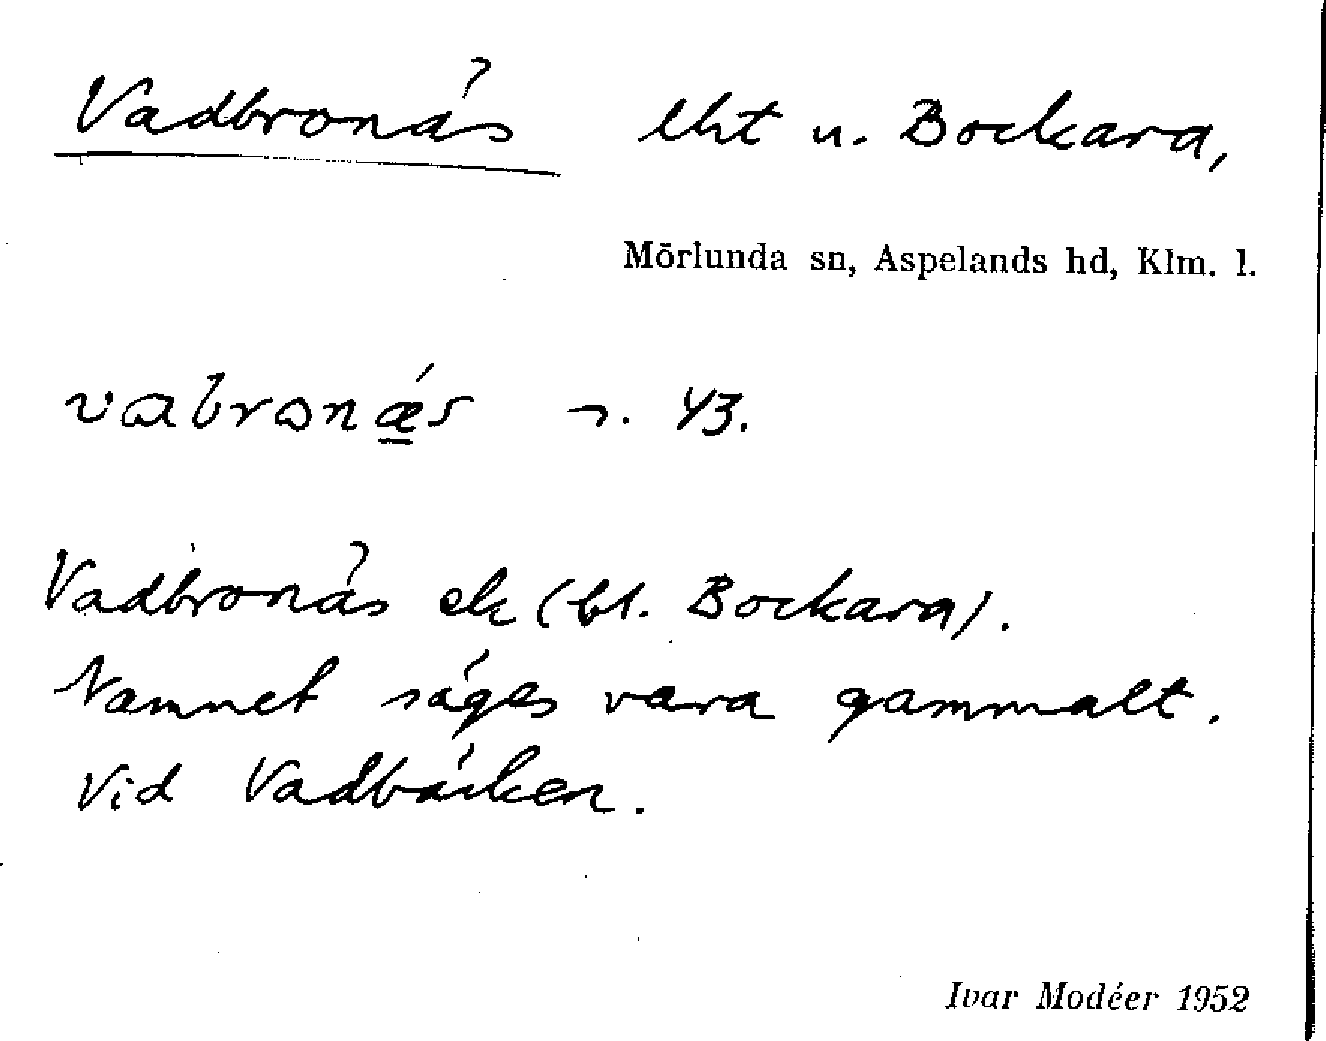 Vadbronäs lht u. Bockara,
Mörlunda sn, Aspelands hd, Klm. l.
vabronæ´s r. 43.
Vadbronäs ek (bl. Bockara).
Namnet säges vara gammalt.
Vid Vadbäcken.
Ivar Modéer 1952